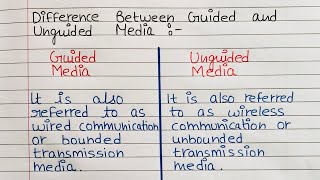 Difference Between Guided and
Unguided Media :-
Guided
Media
It is also
referred to as
wired communication
or bounded
transmission
media.
Unguided
Media
It is also referred
to as wireless
communication or
unbounded
transmission
media.